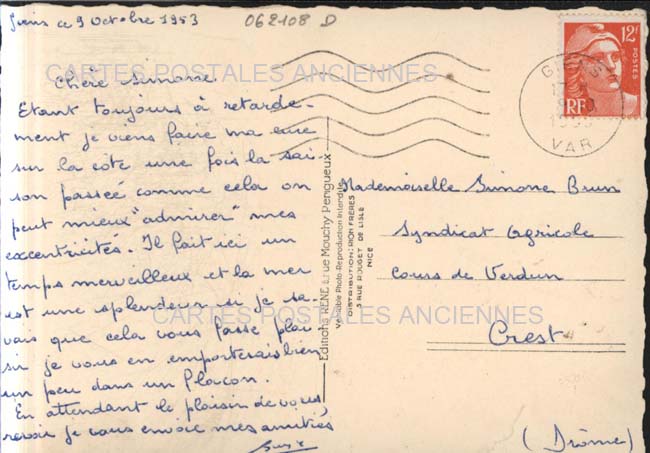 Giens ce 9 Octobre 1953
062108 D
CARTES POSTALES ANCIENNES
Chère Simone.
Etant toujours à retarde-
ment je viens faire ma cure
sur la côte une fois la sai-
son passée comme cela on
peut mieux "admirer" mes
excentricités. Il fait ici un
temps merveilleux et la mer
est une splendeur si je sa-
vais que cela vous fasse plai
sir je vous en emporterais bien
un peu dans un flacon.
En attendant le plaisir de vous
revoir je vous envoie mes amitiés
Editions RENÉ rue Mouchy Périgueux
Véritable Photo-Reproduction Interdite
DISTRIBUTION: RION FRÈRES
3 RUE ROUGET DE LISLE
NICE
12F
POSTES
RF
GIENS
VAR
Mademoiselle Simone Brun
Syndicat Agricole
Cours de Verdun
CARTES POSTALES ANCIENNES
Crest
(Drôme)